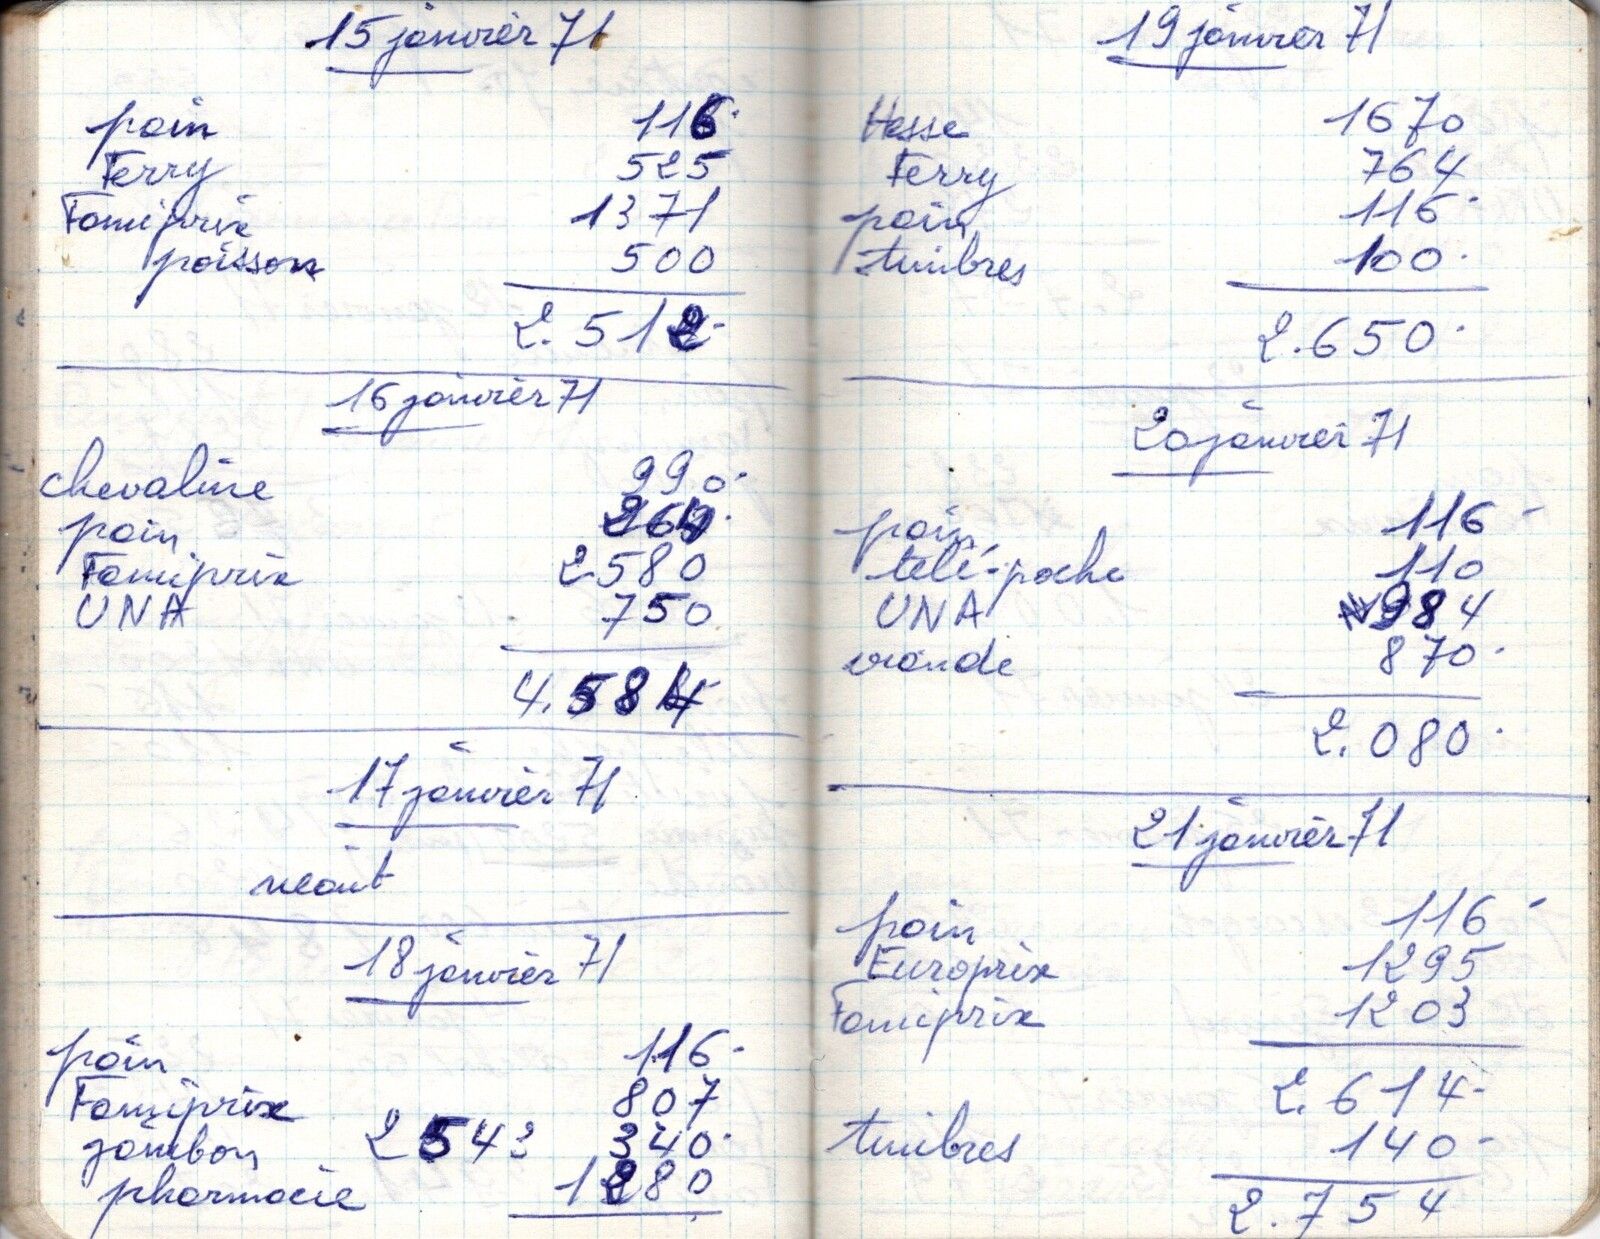 15 janvier 71
pain 116.
Ferry 525
Famiprix 1371
poisson 500
2.512.
16 janvier 71
chevaline 990.
pain 264.
Famiprix 2580
UNA 750
4.584
17 janvier 71
néant
18 janvier 71
pain 116.
Famiprix 807
jambon 2543 340.
pharmacie 1280
19 janvier 71
Hesse 1670
Ferry 764
pain 116.
timbres 100.
2.650.
20 janvier 71
pain 116-
télé-poche 110
UNA 984
viande 870.
2.080.
21 janvier 71
pain 116-
Europrix 1295
Famiprix 1203
2.614-
timbres 140-
2.754